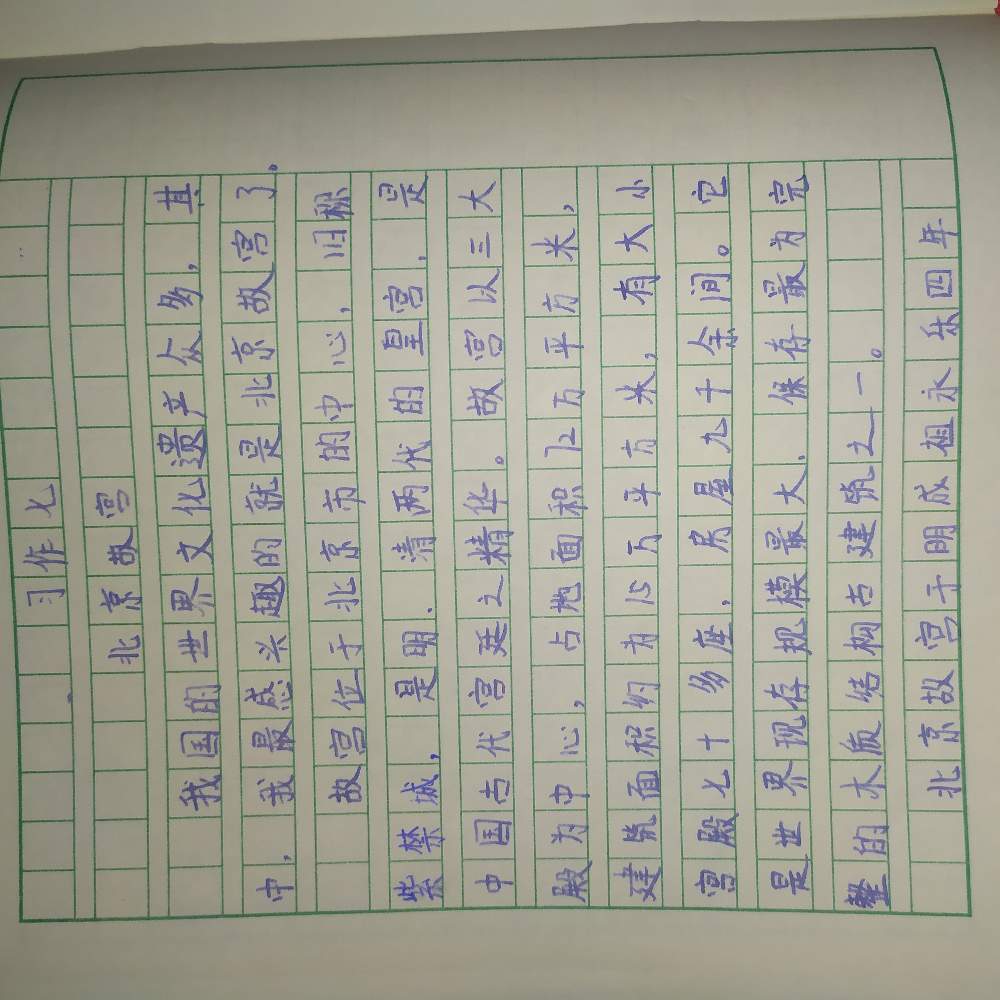 习作七
北京故宫
我国的世界文化遗产众多，其
中，我最感兴趣的就是北京故宫了。
故宫位于北京市的中心，旧称
紫禁城，是明、清两代的皇宫，是
中国古代宫廷之精华。故宫以三大
殿为中心，占地面积72万平方米，
建筑面积约为15万平方米，有大小
宫殿七十多座，房屋九千余间。它
是世界现存规模最大、保存最为完
整的木质结构古建筑之一。
北京故宫于明成祖永乐四年